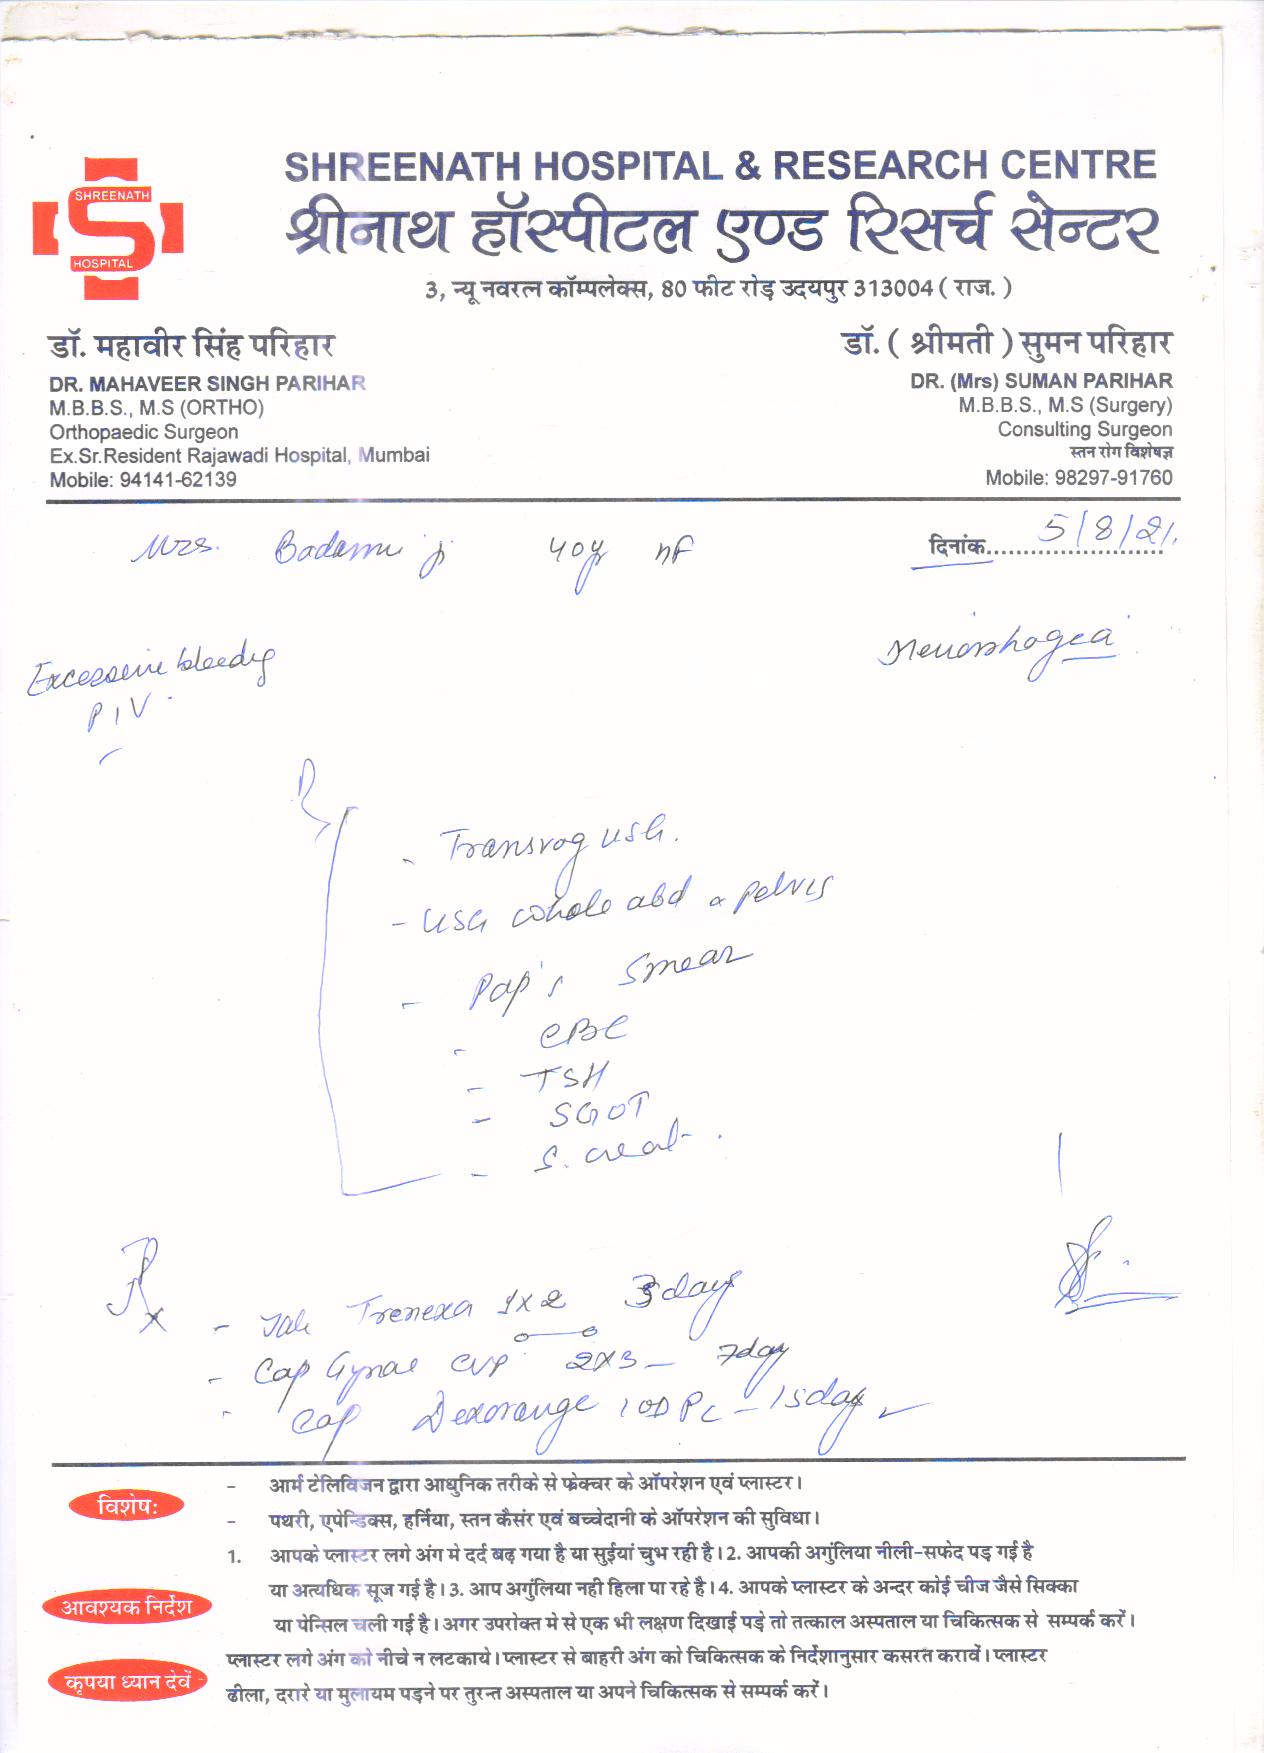 SHREENATH
HOSPITAL
SHREENATH HOSPITAL & RESEARCH CENTRE
श्रीनाथ हॉस्पीटल एण्ड रिसर्च सेन्टर
3, न्यू नवरत्न कॉम्पलेक्स, 80 फीट रोड़ उदयपुर 313004 ( राज. )
डॉ. महावीर सिंह परिहार
DR. MAHAVEER SINGH PARIHAR
M.B.B.S., M.S (ORTHO)
Orthopaedic Surgeon
Ex.Sr.Resident Rajawadi Hospital, Mumbai
Mobile: 94141-62139
डॉ. ( श्रीमती ) सुमन परिहार
DR. (Mrs) SUMAN PARIHAR
M.B.B.S., M.S (Surgery)
Consulting Surgeon
स्तन रोग विशेषज्ञ
Mobile: 98297-91760
Mrs. Badami ji 40y
दिनांक 5/8/21.
Excessive bleeding
P/V
Menorrhagea
- Transvag USG.
- USG whole abd & pelvis
- Pap's Smear
- CBC
- TSH
- SGOT
- S. creat.
Rx
- Tab Trenexa 1x2 3day
- Cap Gynae CVP 2x3 - 7day
- Cap Dexorange 1OD PC - 15day
विशेषः
- आर्म टेलिविजन द्वारा आधुनिक तरीके से फ्रेक्चर के ऑपरेशन एवं प्लास्टर।
- पथरी, एपेन्डिक्स, हर्निया, स्तन कैसंर एवं बच्चेदानी के ऑपरेशन की सुविधा।
आवश्यक निर्देश
1. आपके प्लास्टर लगे अंग मे दर्द बढ़ गया है या सुईयां चुभ रही है। 2. आपकी अगुंलिया नीली-सफेद पड़ गई है
या अत्यधिक सूज गई है। 3. आप अगुंलिया नही हिला पा रहे है। 4. आपके प्लास्टर के अन्दर कोई चीज जैसे सिक्का
या पेन्सिल चली गई है। अगर उपरोक्त मे से एक भी लक्षण दिखाई पड़े तो तत्काल अस्पताल या चिकित्सक से सम्पर्क करें।
कृपया ध्यान देवें
प्लास्टर लगे अंग को नीचे न लटकाये। प्लास्टर से बाहरी अंग को चिकित्सक के निर्देशानुसार कसरत करावें। प्लास्टर
ढीला, दरारे या मुलायम पड़ने पर तुरन्त अस्पताल या अपने चिकित्सक से सम्पर्क करें।